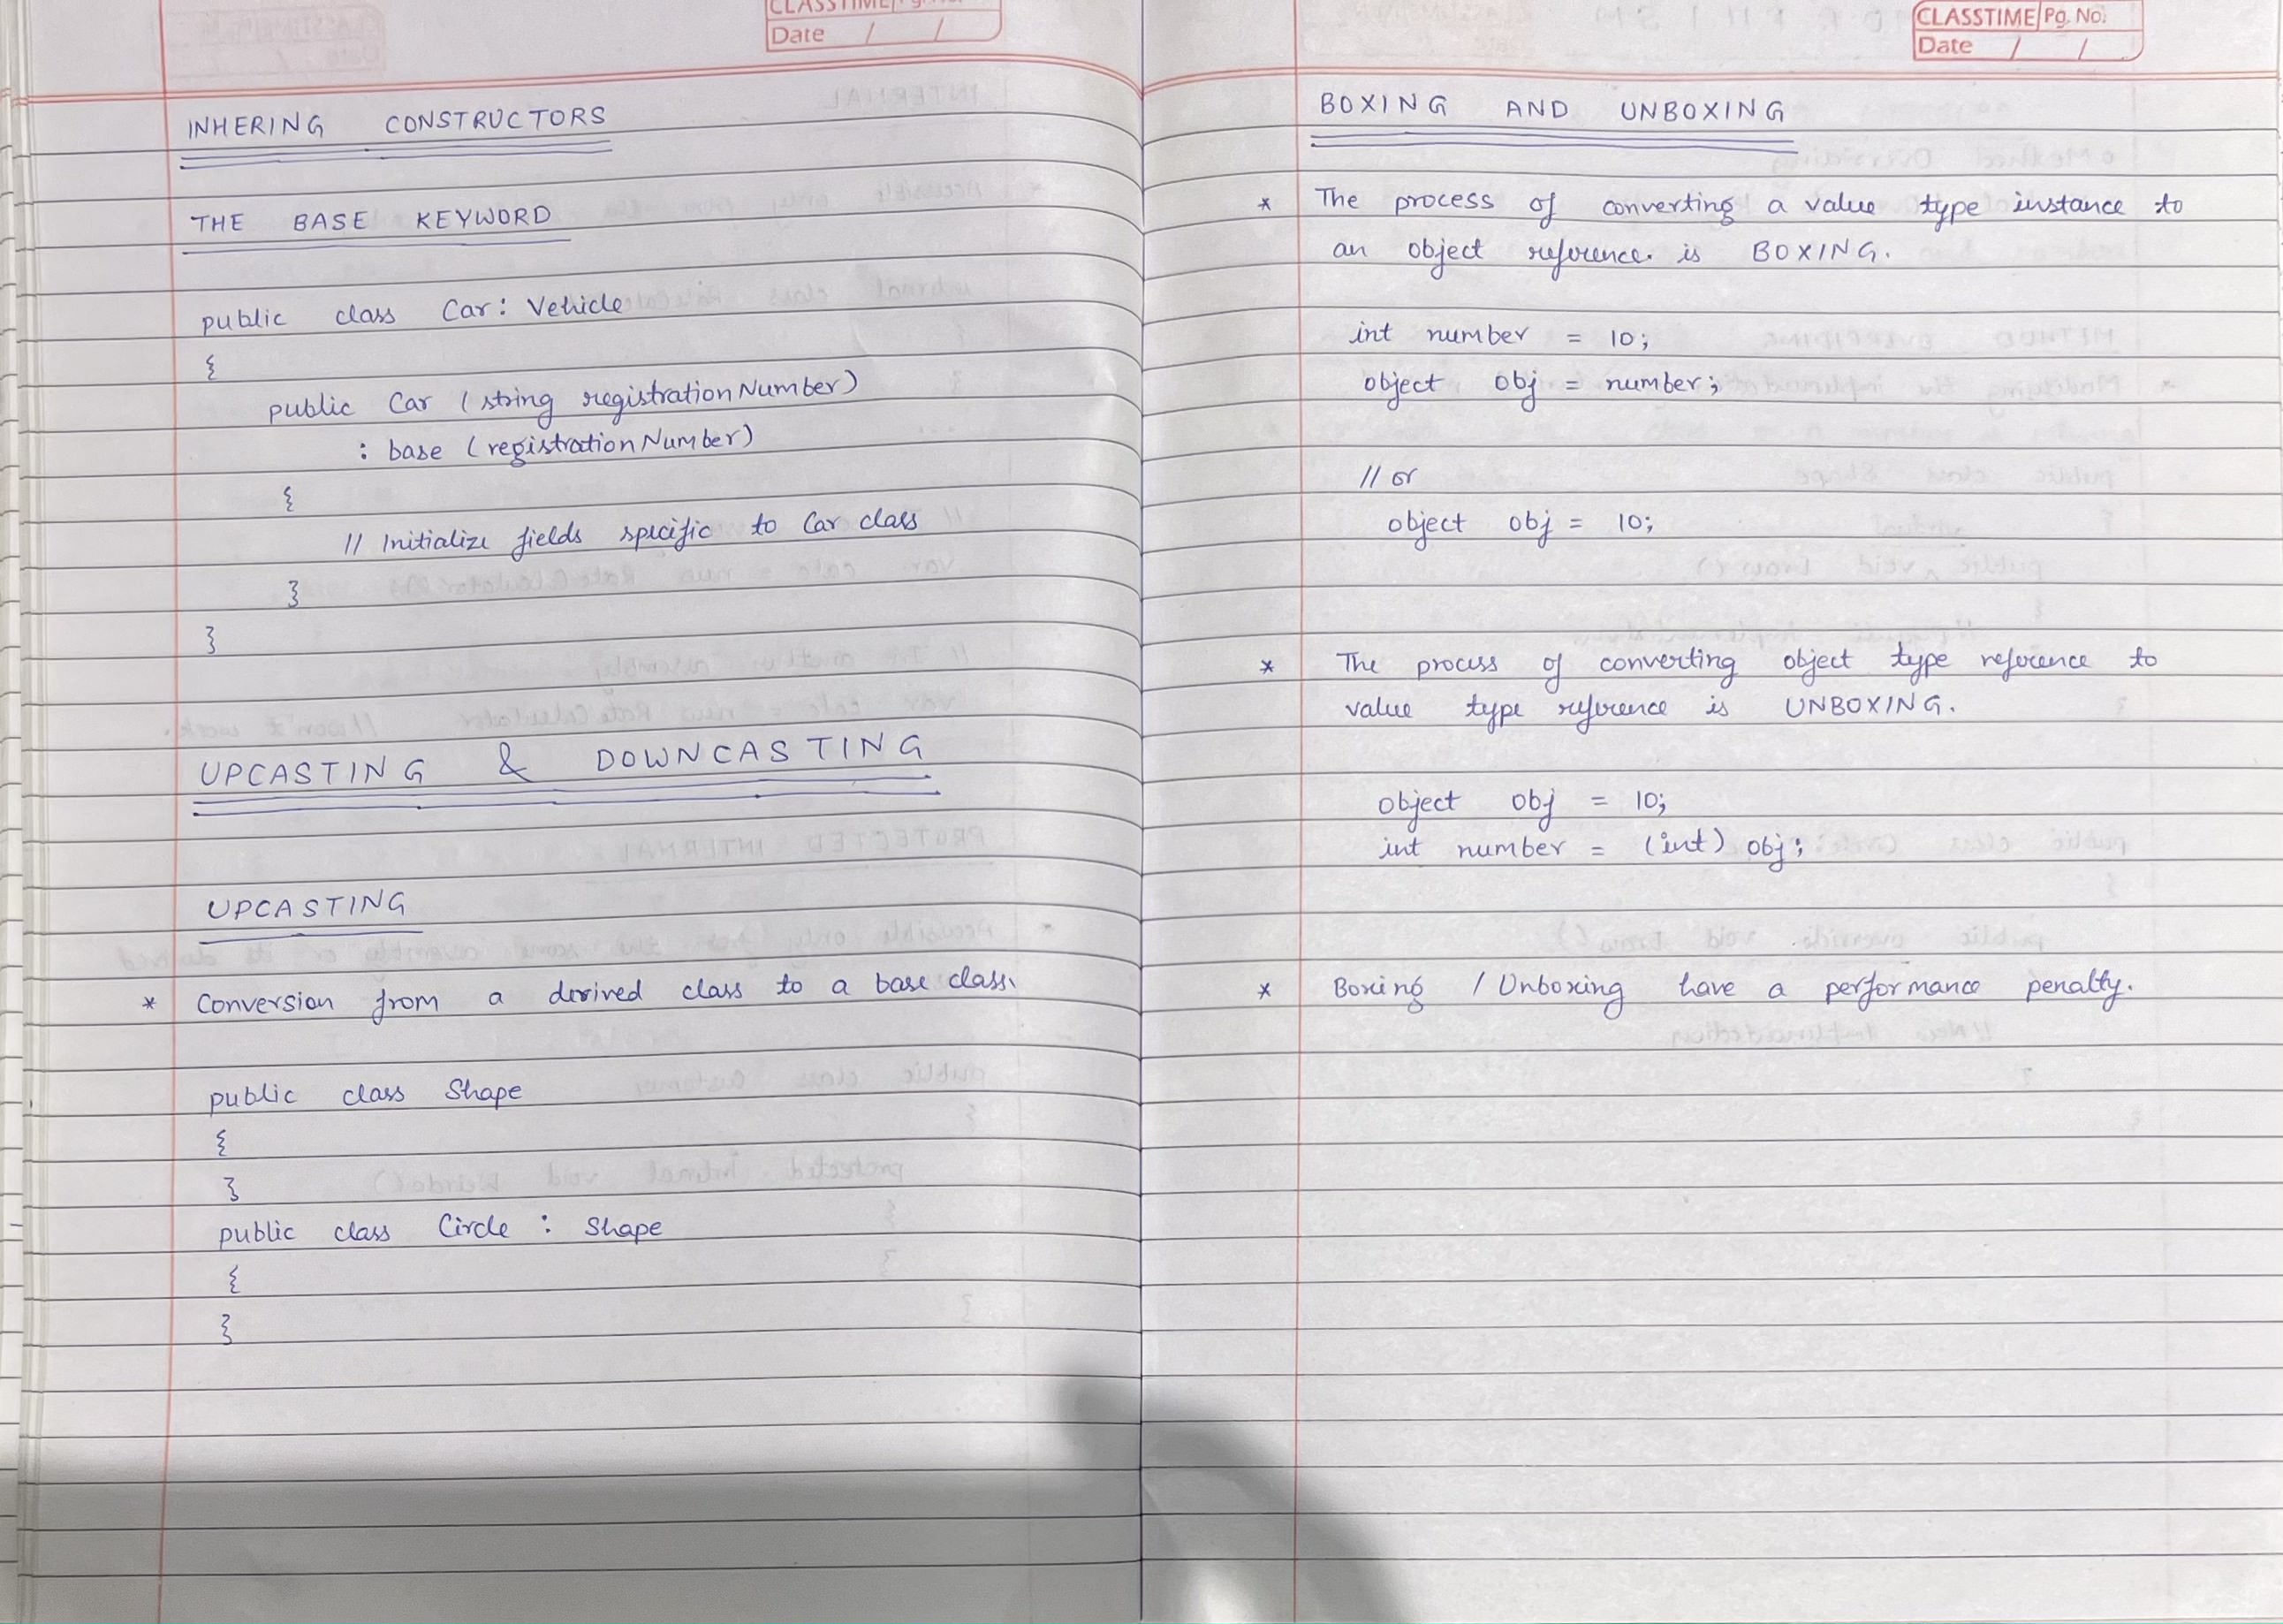 CLASSTIME Pg. No.
Date / /
INHERING CONSTRUCTORS
THE BASE KEYWORD
public class Car : Vehicle
{
public Car (string registrationNumber)
: base (registrationNumber)
{
// Initialize fields specific to Car class
}
}
UPCASTING & DOWNCASTING
UPCASTING
* Conversion from a derived class to a base class.
public class Shape
{
}
public class Circle : Shape
{
}
CLASSTIME Pg. No.
Date / /
BOXING AND UNBOXING
* The process of converting a value type instance to
an object reference. is BOXING.
int number = 10;
object obj = number;
// or
object obj = 10;
* The process of converting object type reference to
value type reference is UNBOXING.
object obj = 10;
int number = (int) obj;
* Boxing / Unboxing have a performance penalty.